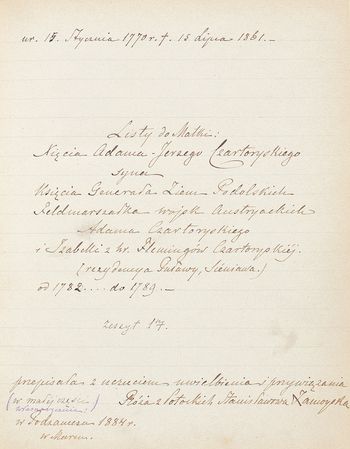 ur. 15. Stycznia 1770 r. † 15 Lipca 1861. –
Listy do Matki:
Xięcia Adama-Jerzego Czartoryskiego
syna
Księcia Generała Ziem Podolskich
Feldmarszałka wojsk Austryackich
Adama Czartoryskiego
i Izabelli z hr. Flemingów Czartoryskiéj.
(rezydencya Puławy, Sieniawa.)
od 1782.... do 1789. –
Zeszyt 17.
przepisała z uczuciem uwielbienia i przywiązania
(w małej części
Róża z Potockich Stanisławowa Zamoyska
w Podzamczu 1884 r.
w Marcu.